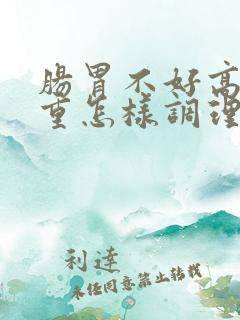 腸胃不好高
重怎樣調理
利達
未經同意禁止轉載